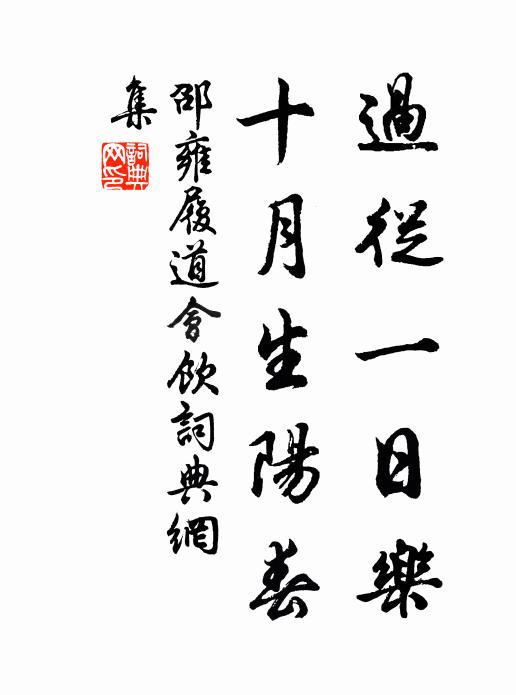 過從一日樂
十月生陽春
邵雍履道會飲詞典網
集
詞典
网印